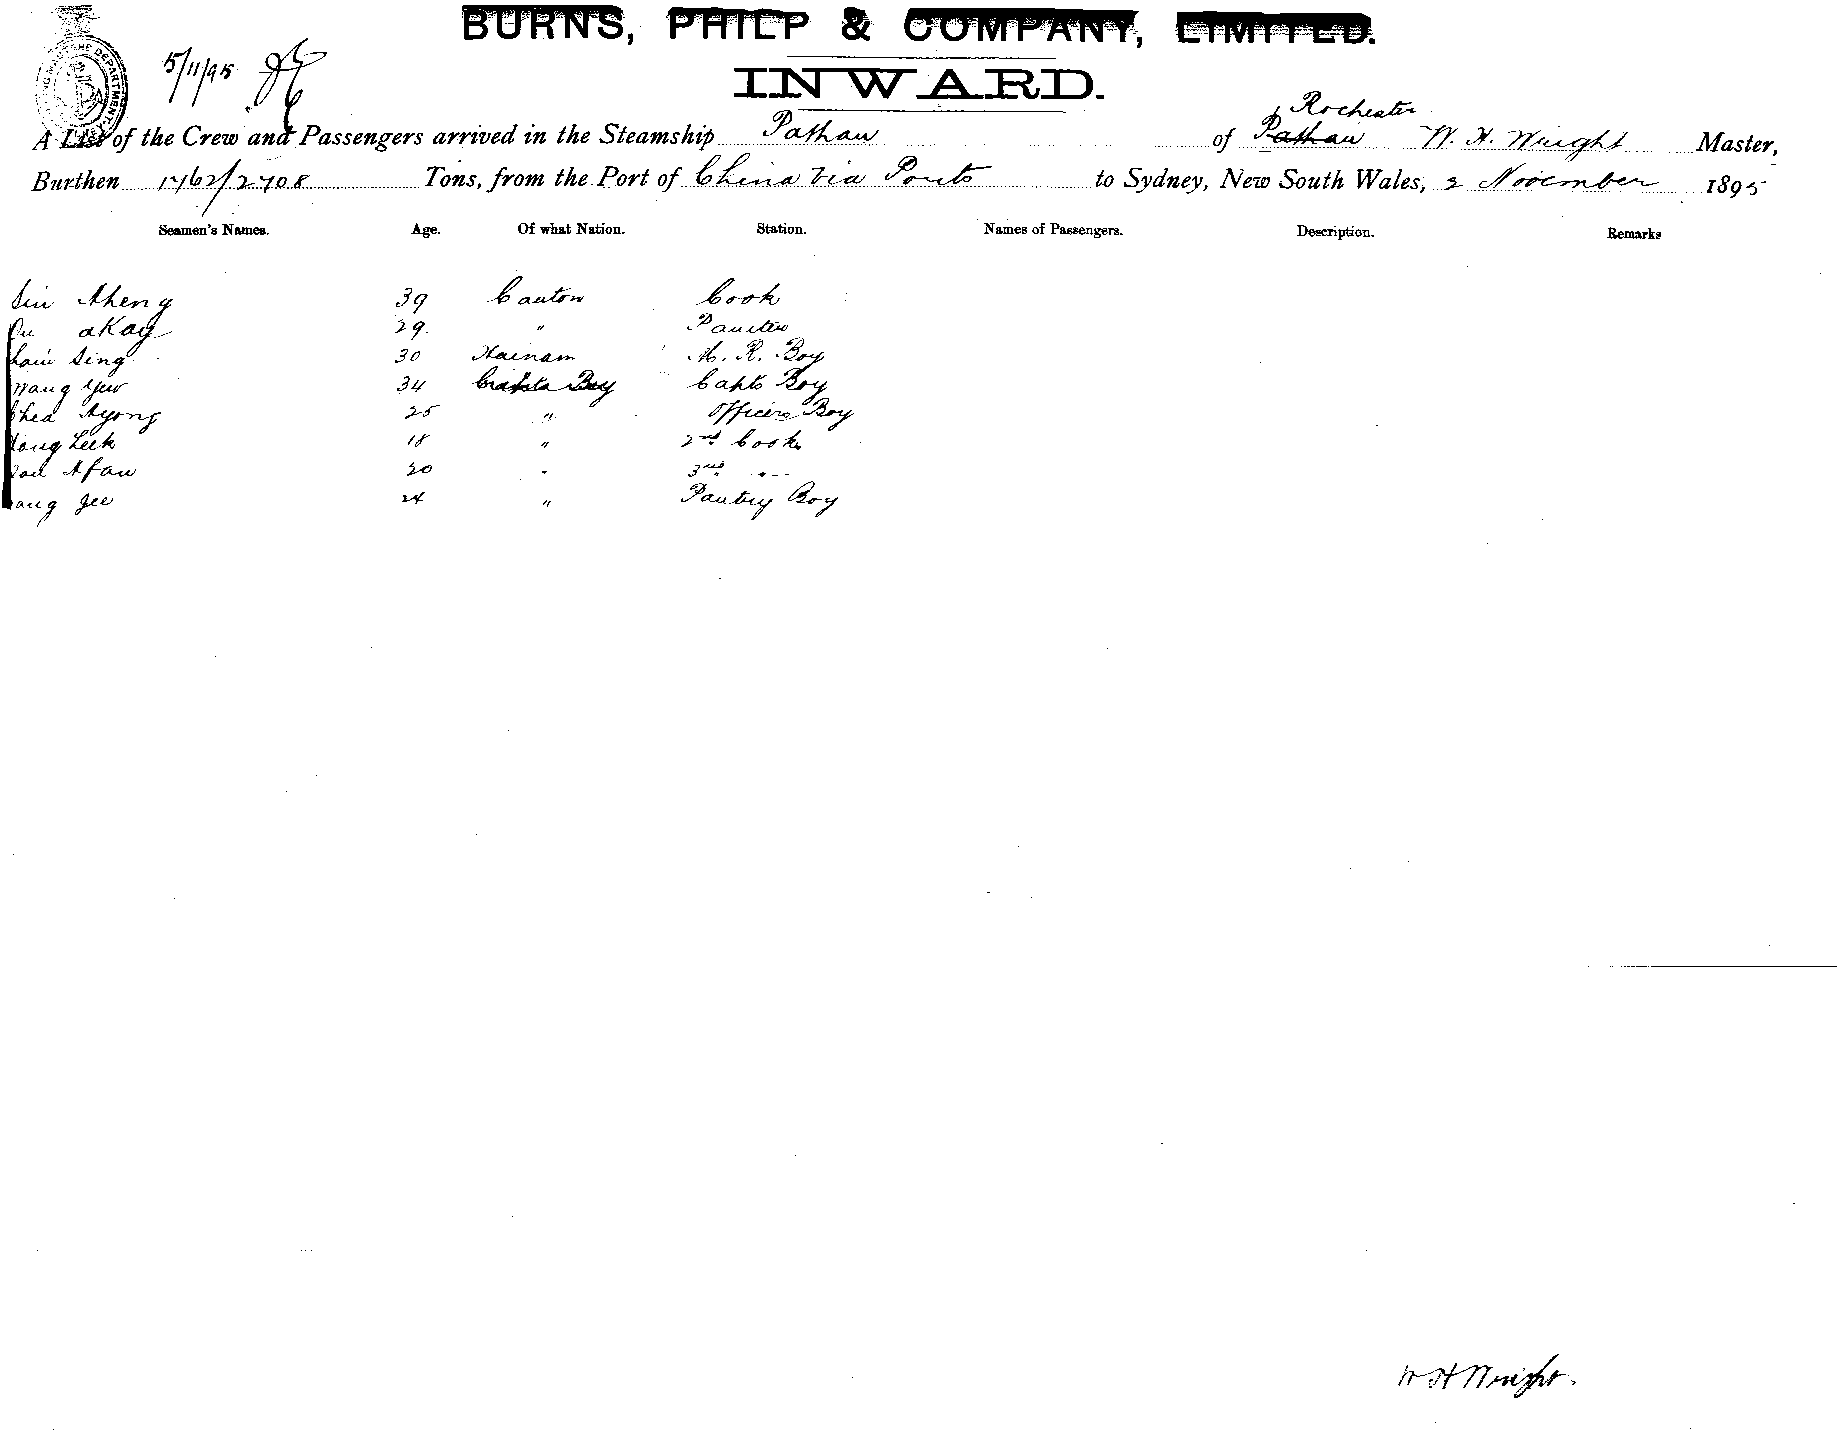 BURNS, PHILP & COMPANY, LIMITED.
5/11/95
INWARD.
Rochester
A List of the Crew and Passengers arrived in the Steamship Pathan of Pathan W. H. Wright Master,
Burthen 1762/2708 Tons, from the Port of China via Ports to Sydney, New South Wales, 2 November 1895
Seamen's Names. Age. Of what Nation. Station. Names of Passengers. Description. Remarks
Sin Aheng 39 Canton Cook
akay 29 " Painter
Sing 30 Hainam M. R. Boy
Yuw 34 Capts Boy
Ayong 25 " Officers Boy
Leek 18 " 2nd Cook
Afan 20 " 3rd "
Jee 24 " Pantry Boy
W H Wright.